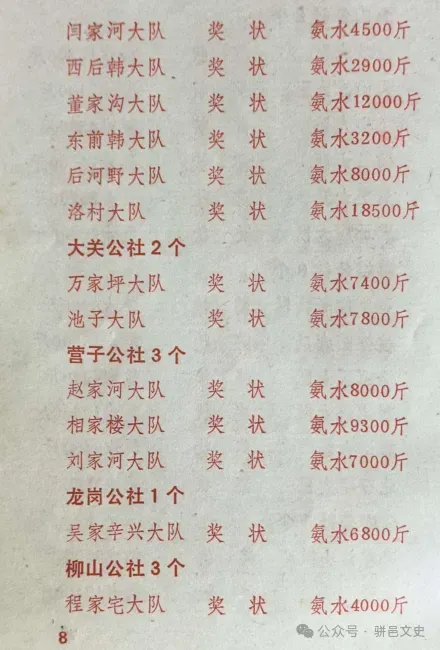 闫家河大队 奖 状 氨水4500斤
西后韩大队 奖 状 氨水2900斤
董家沟大队 奖 状 氨水12000斤
东前韩大队 奖 状 氨水3200斤
后河野大队 奖 状 氨水8000斤
洛村大队 奖 状 氨水18500斤
大关公社2个
万家坪大队 奖 状 氨水7400斤
池子大队 奖 状 氨水7800斤
营子公社3个
赵家河大队 奖 状 氨水8000斤
相家楼大队 奖 状 氨水9300斤
刘家河大队 奖 状 氨水7000斤
龙岗公社1个
吴家辛兴大队 奖 状 氨水6800斤
柳山公社3个
程家宅大队 奖 状 氨水4000斤
8
公众号·骈邑文史